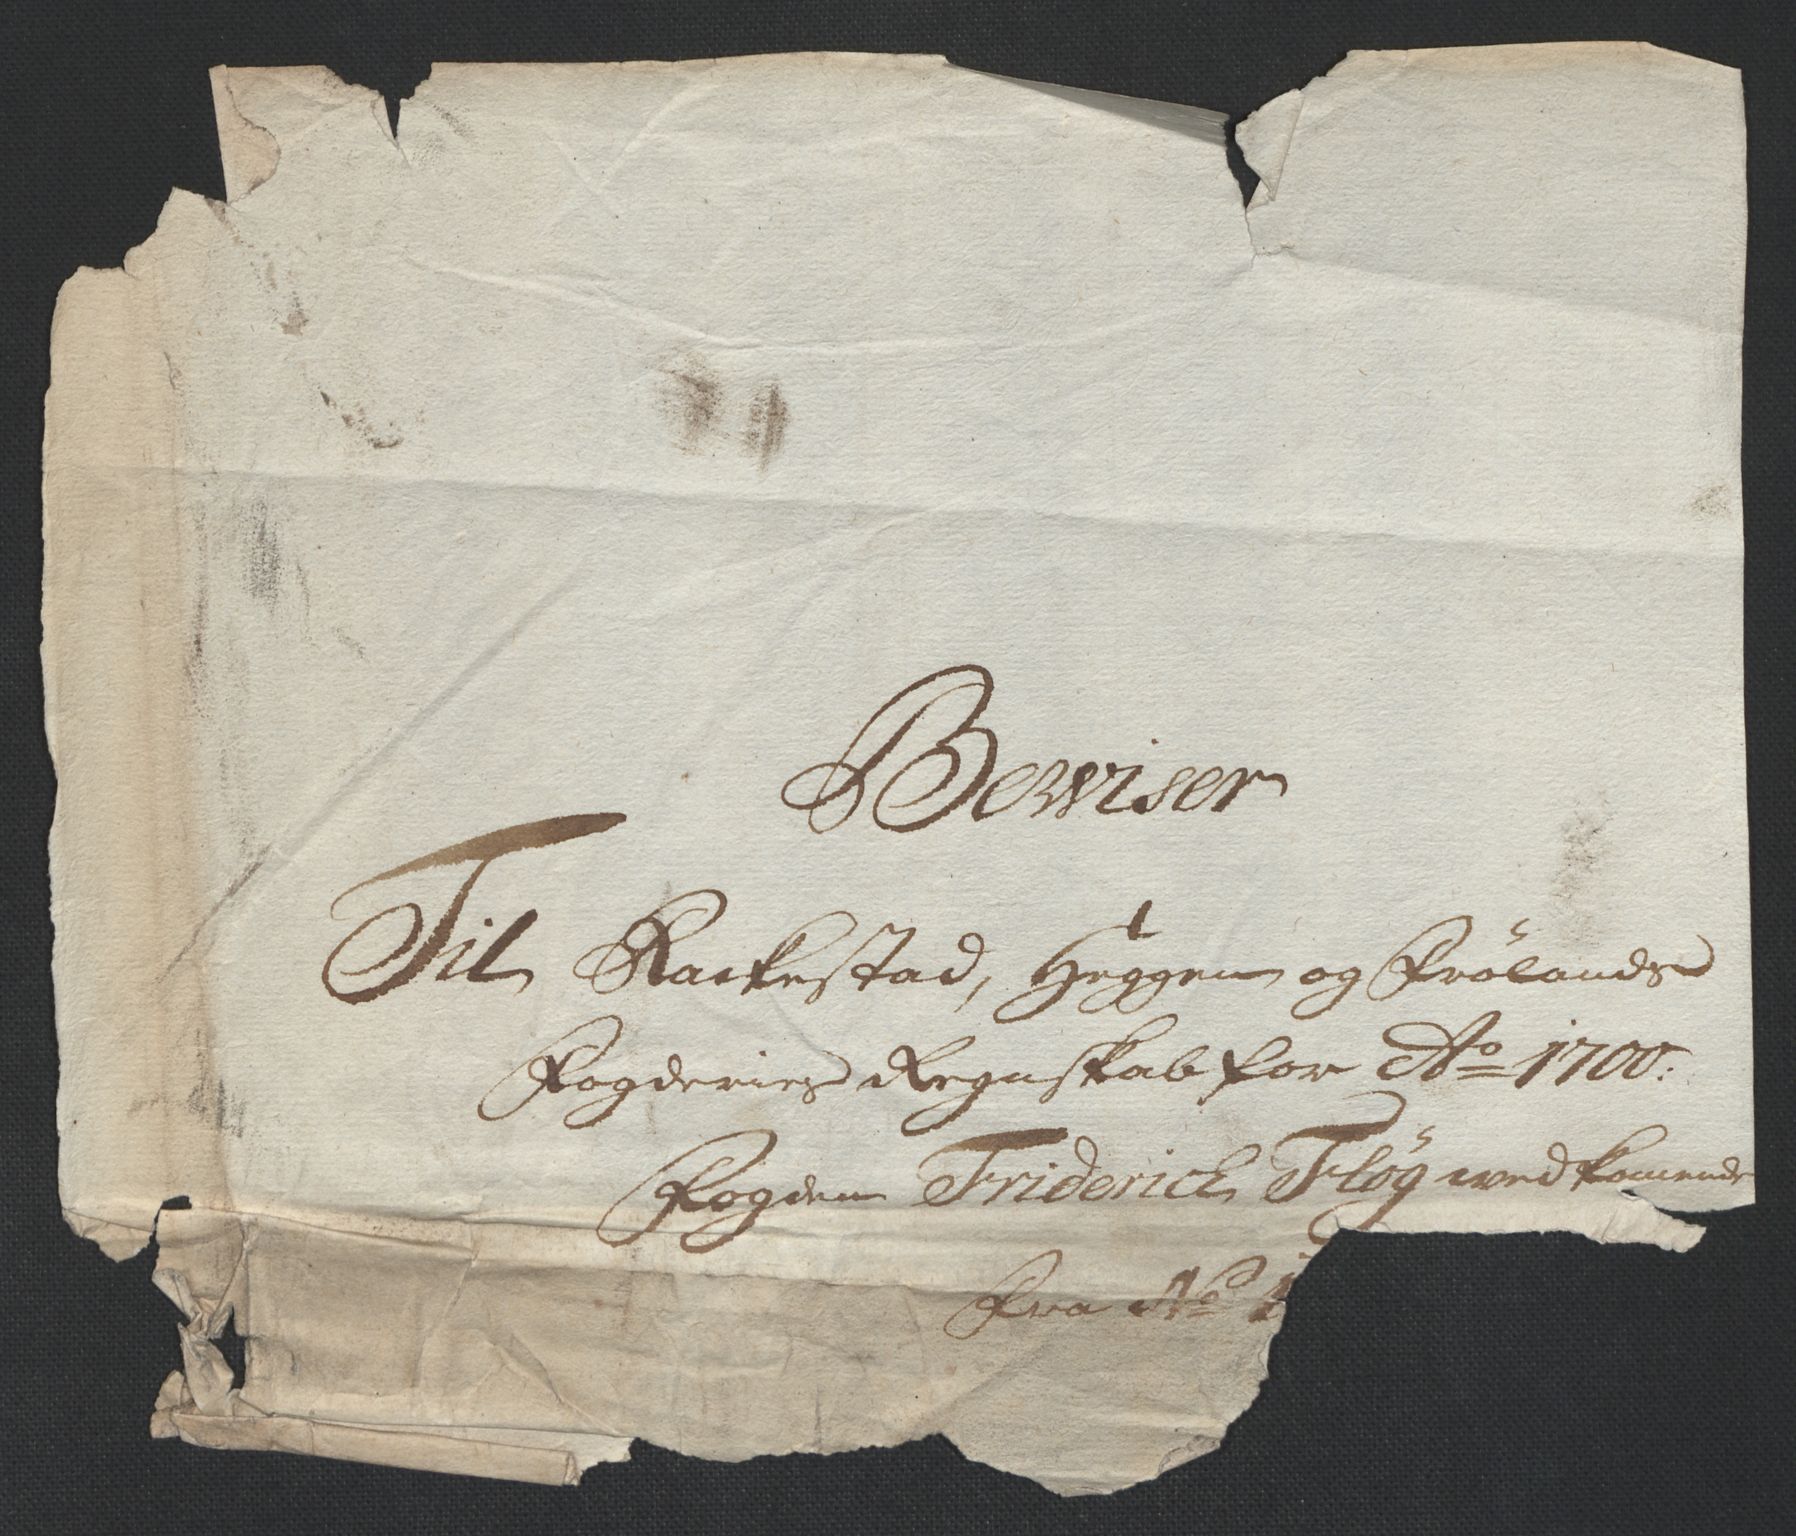 Bewiser
Til Rackestad, Heggen og Frölands
Fogderies Regnskab for Ao 1700:
Fogden Friderich Flög wedkomende
Fra No 1